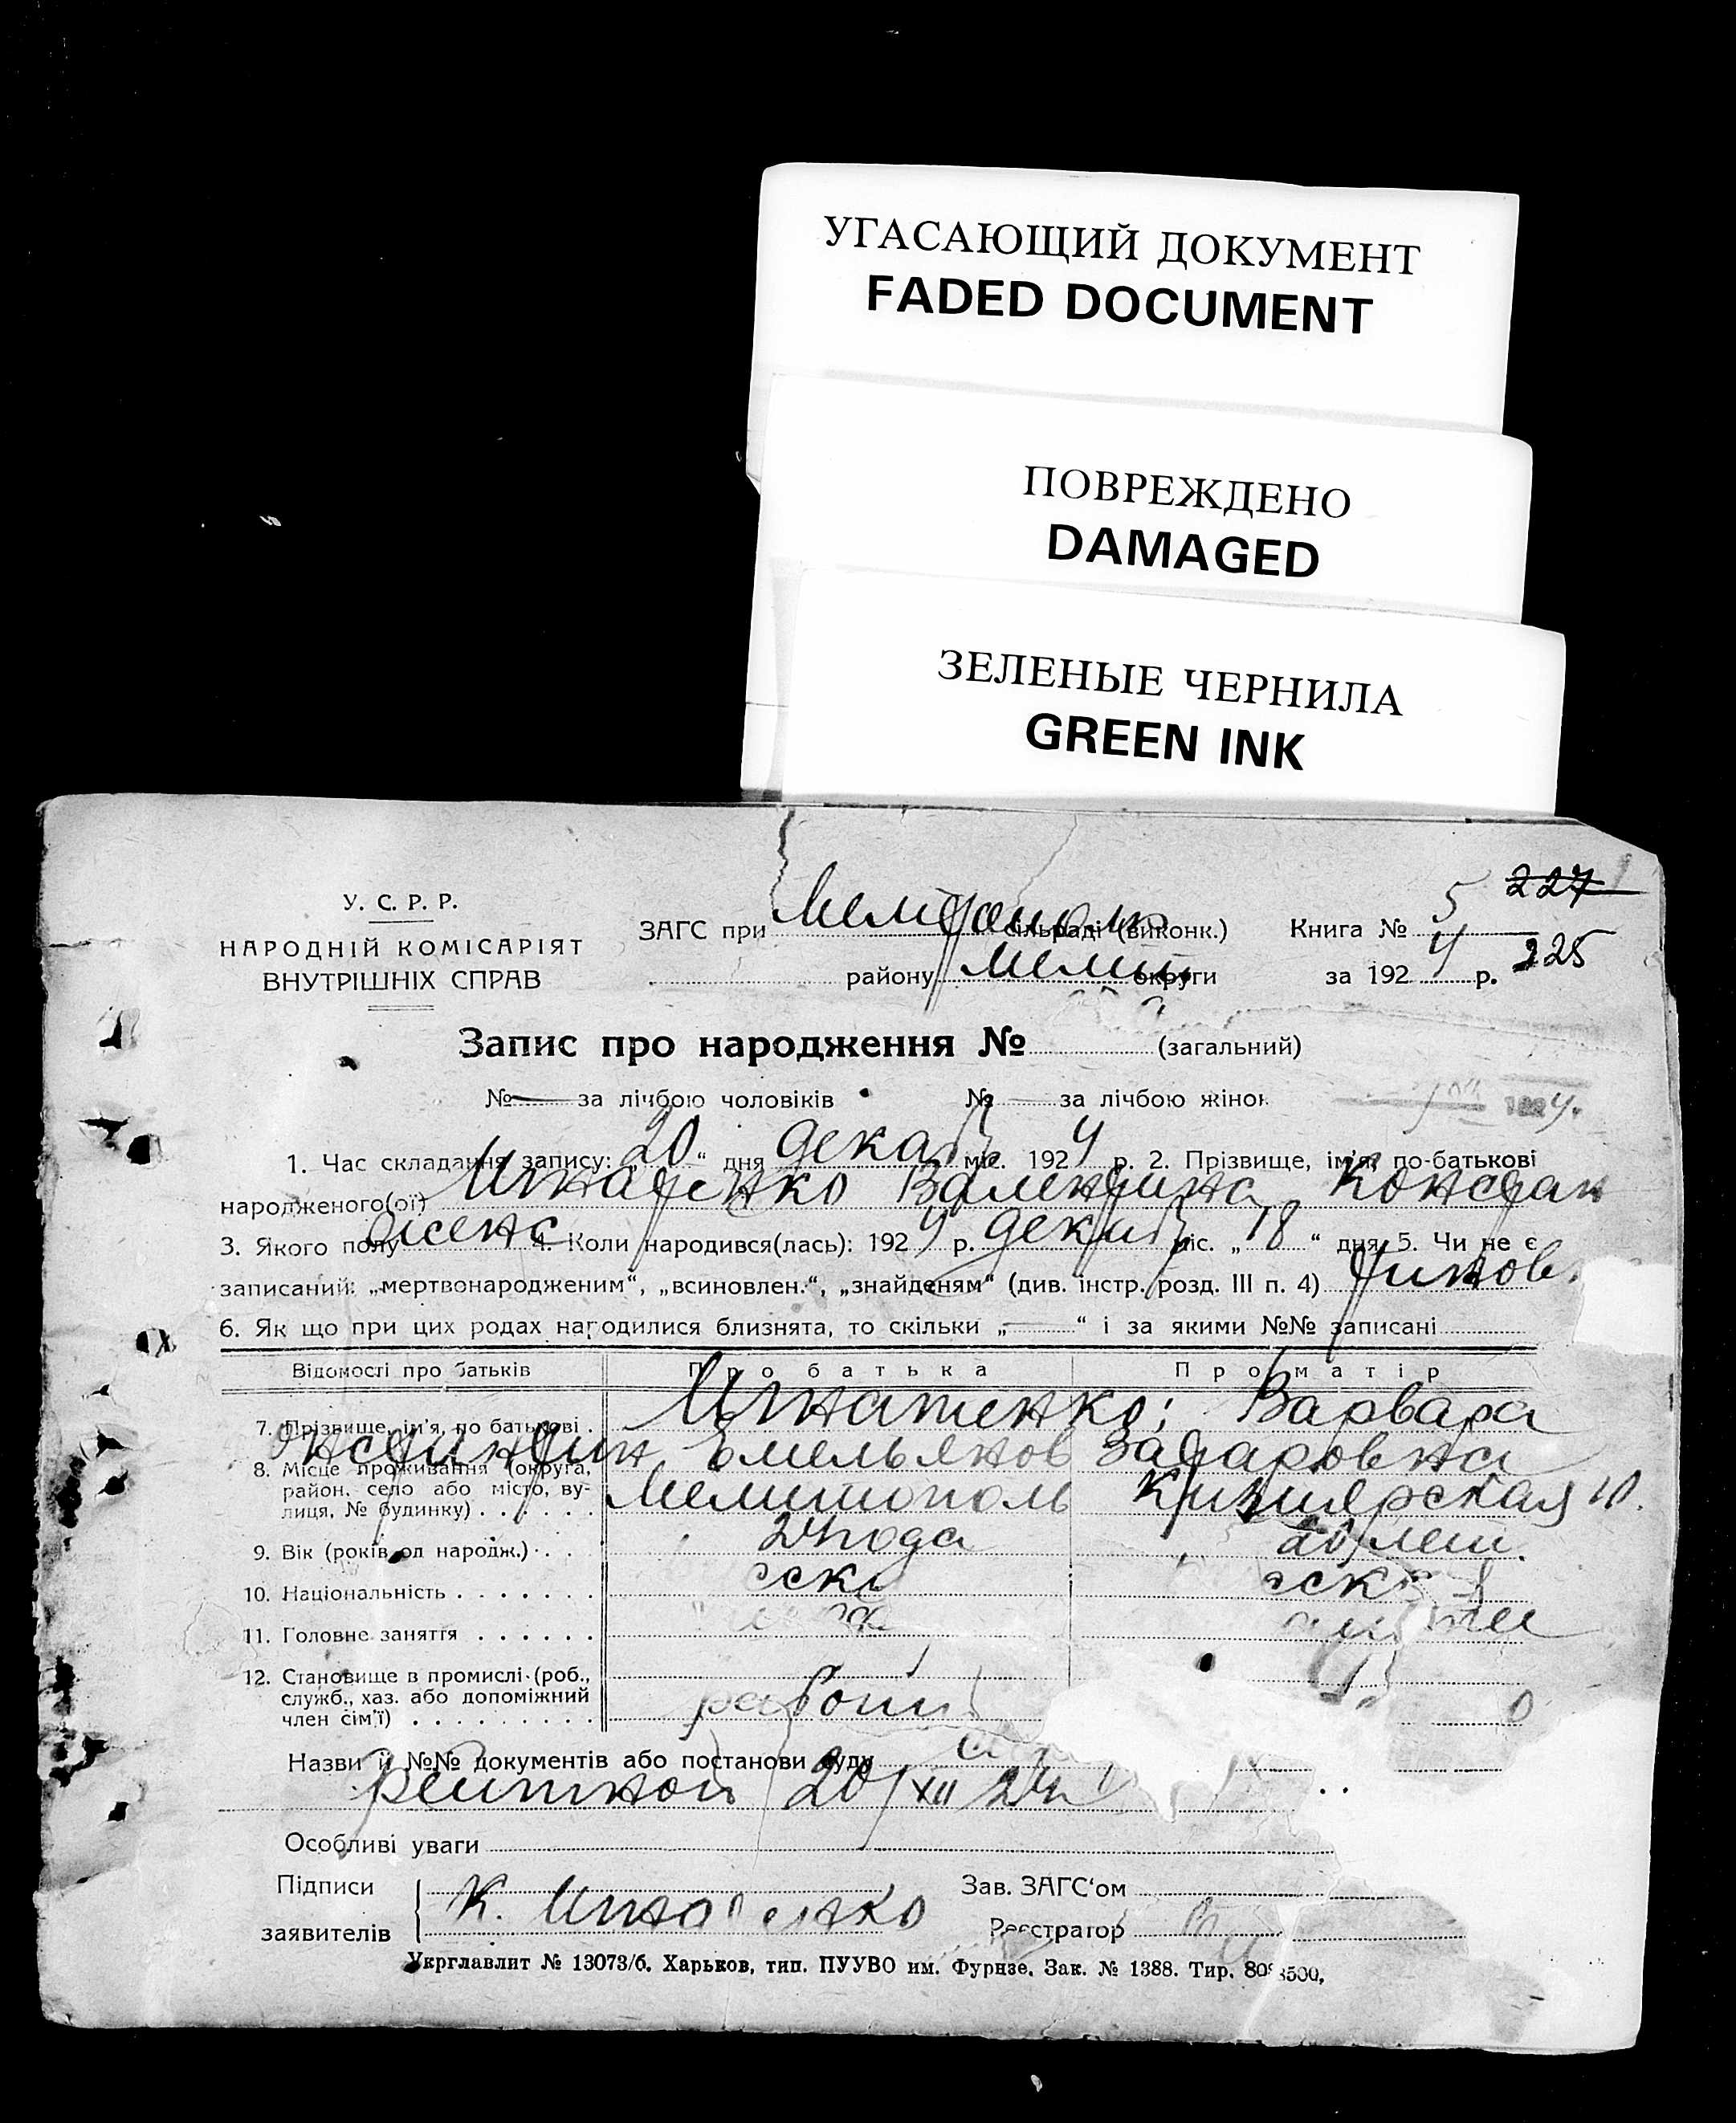 УГАСАЮЩИЙ ДОКУМЕНТ
FADED DOCUMENT
ПОВРЕЖДЕНО
DAMAGED
ЗЕЛЕНЫЕ ЧЕРНИЛА
GREEN INK
У. С. Р. Р.
НАРОДНІЙ КОМІСАРІЯТ
ВНУТРІШНІХ СПРАВ
ЗАГС при Мелитополь сільраді (виконк.)
району Мелит округи
Книга № 5 227
за 1924 р. 225
Запис про народження № (загальний)
№ — за лічбою чоловіків № — за лічбою жінок
1. Час складання запису: „20“ дня декаб міс. 1924 р. 2. Прізвище, ім'я, по-батькові
народженого(ої) Игнатенко Валентина Констан
3. Якого полу женс 4. Коли народився(лась): 1924 р. декаб міс. „18“ дня 5. Чи не є
записаний: „мертвонародженим“, „всиновлен.“, „знайденям“ (див. інстр. розд. III п. 4)
6. Як що при цих родах народилися близнята, то скільки „—“ і за якими №№ записані
Відомості про батьків Про батька Про матір
7. Прізвище, ім'я, по батькові Игнатенко; Варвара
Константин Емельянов Захаровна
8. Місце проживання (округа, район, село або місто, вулиця, № будинку) Мелитополь Кизиярская 10.
9. Вік (років од народж.) 24 года 20 лет.
10. Національність
11. Головне заняття
12. Становище в промислі (роб., служб., хаз. або допоміжний член сім'ї) работ
Назви й №№ документів або постанови суду
20/XII 24
Особливі уваги
Підписи
заявителів К. Игнатенко
Зав. ЗАГС'ом
Реєстратор
Укрглавлит № 13073/б. Харьков, тип. ПУУВО им. Фурнзе. Зак. № 1388. Тир.